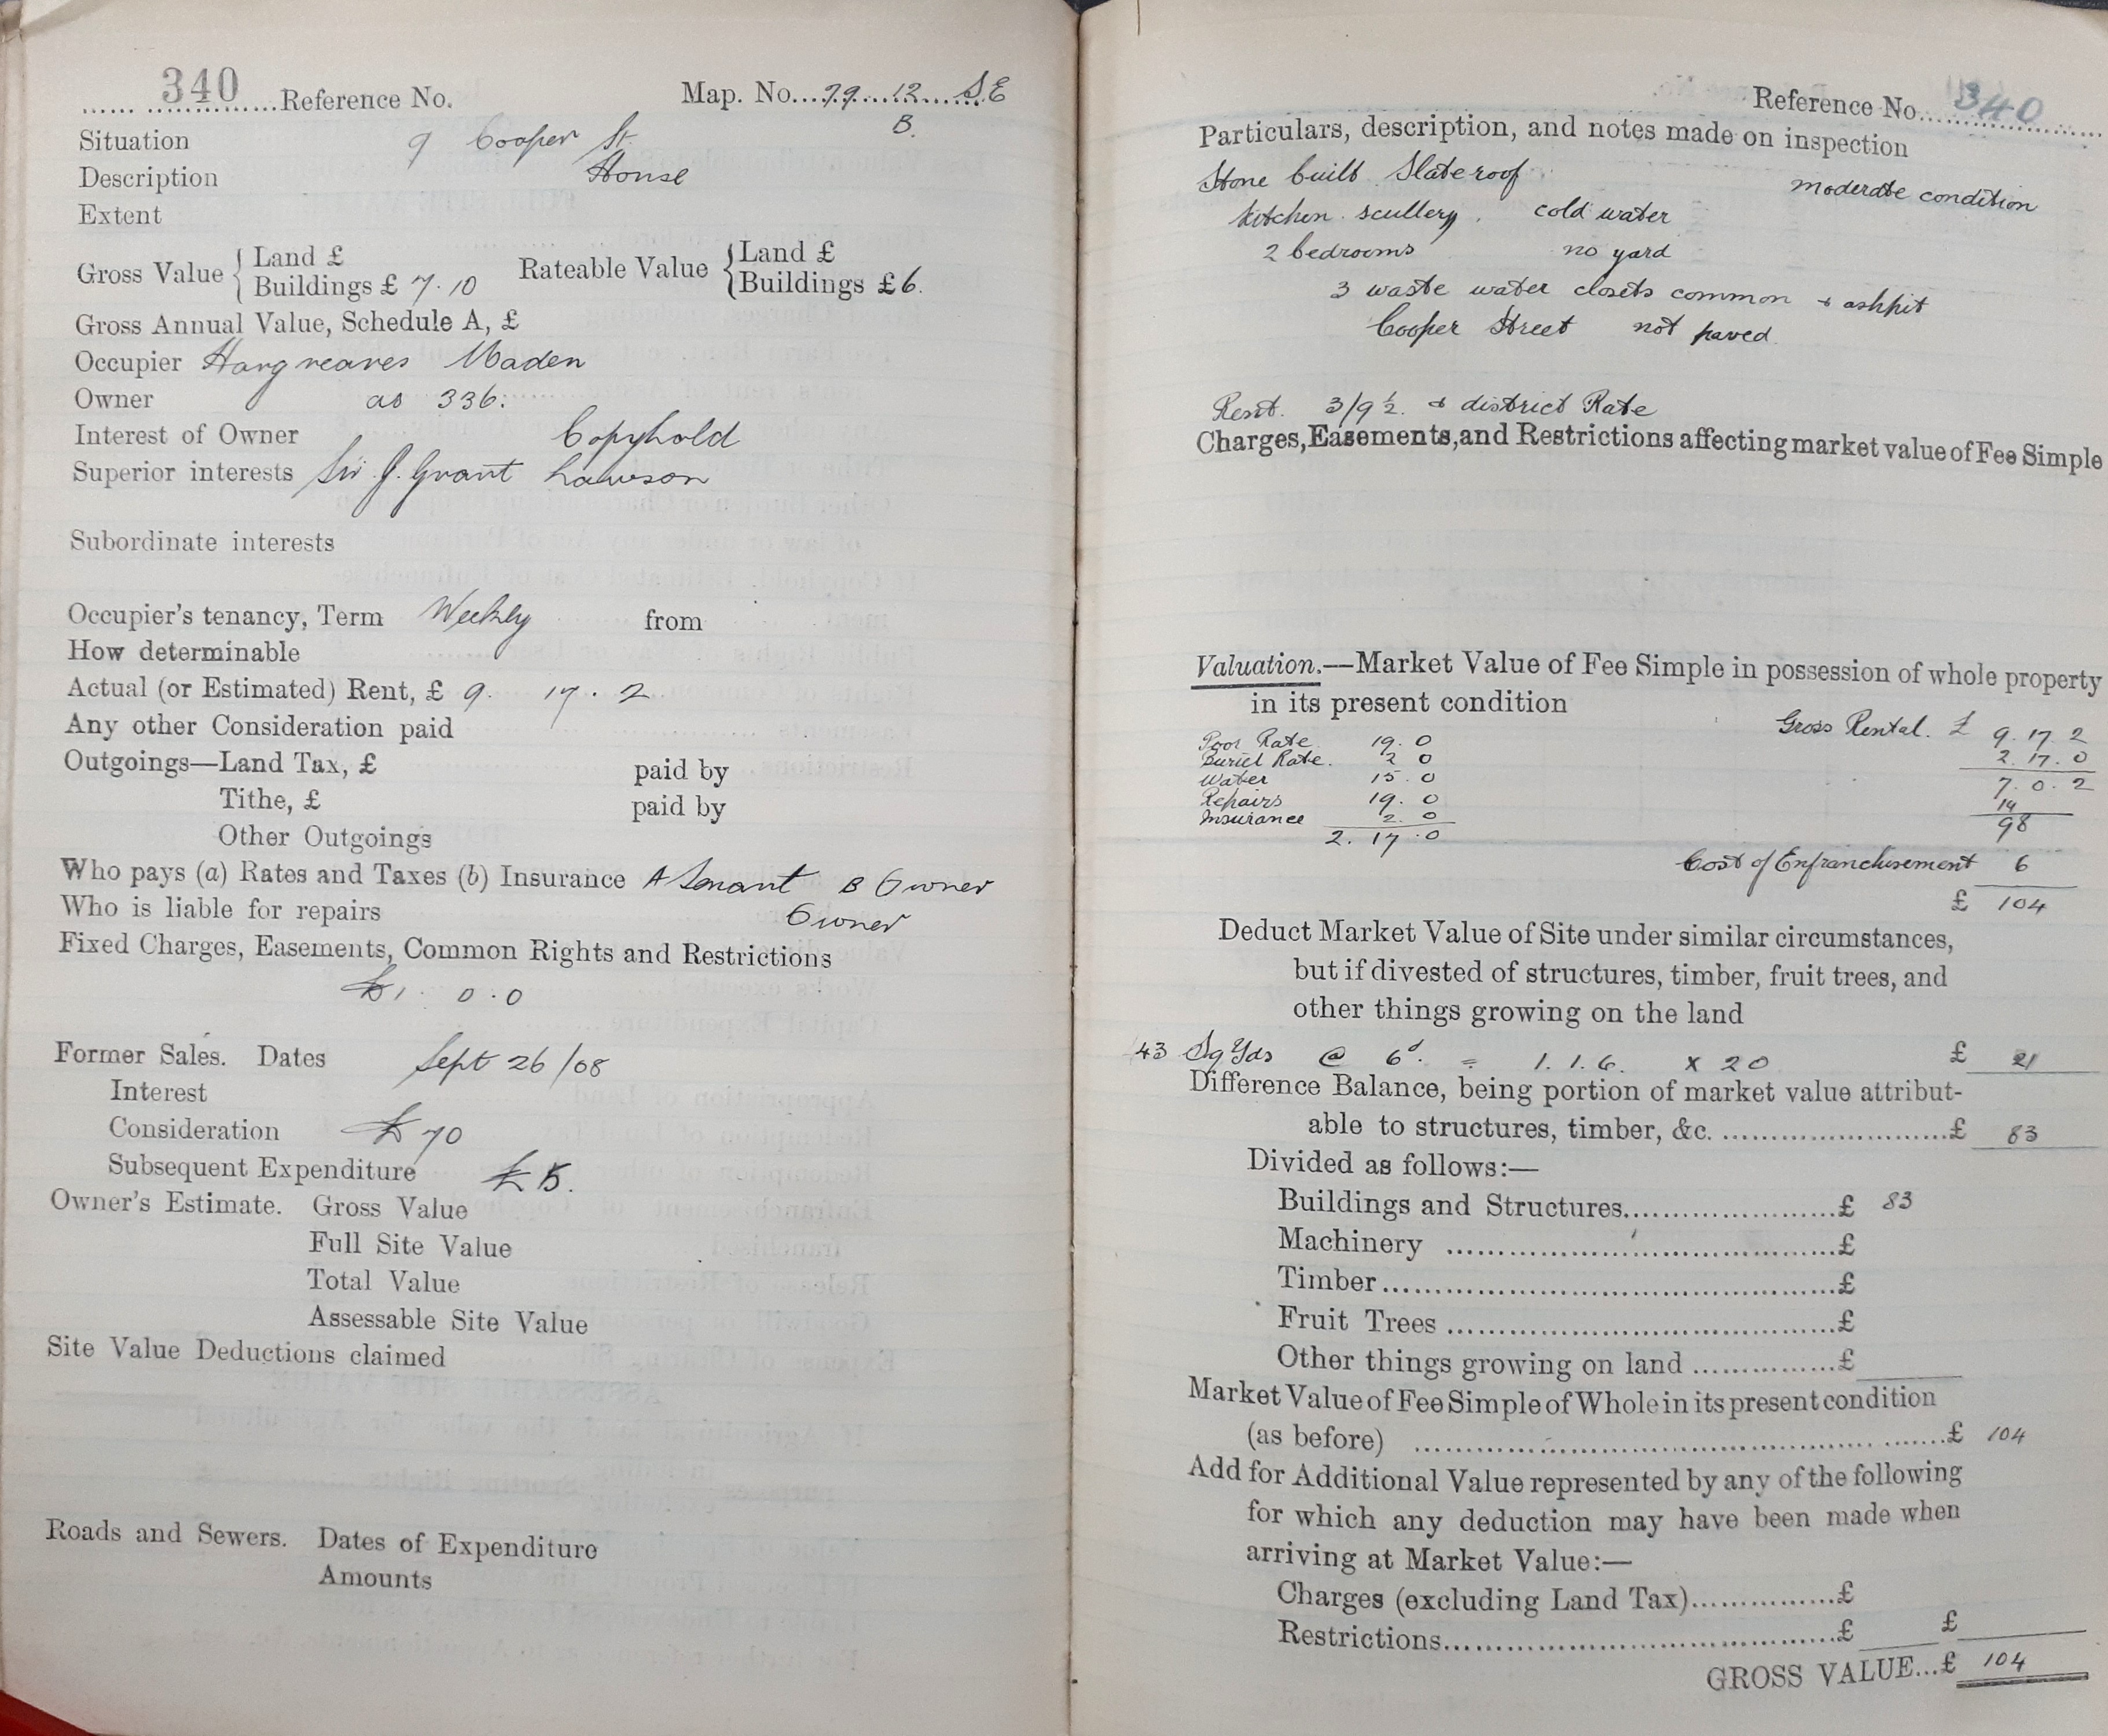 340 Reference No. Map. No. 79 12 S.E
B.
Situation 9 Cooper St.
Description House
Extent
Gross Value { Land £
Buildings £ 7.10 Rateable Value { Land £
Buildings £6.
Gross Annual Value, Schedule A, £
Occupier Hargreaves Maden
Owner as 336.
Interest of Owner Copyhold
Superior interests Sir J. Grant Lawson
Subordinate interests
Occupier's tenancy, Term Weekly from
How determinable
Actual (or Estimated) Rent, £ 9. 17. 2
Any other Consideration paid
Outgoings—Land Tax, £ paid by
Tithe, £ paid by
Other Outgoings
Who pays (a) Rates and Taxes (b) Insurance A Tenant B Owner
Who is liable for repairs Owner
Fixed Charges, Easements, Common Rights and Restrictions
£1. 0. 0
Former Sales. Dates Sept 26/08
Interest
Consideration £70
Subsequent Expenditure £5.
Owner's Estimate. Gross Value
Full Site Value
Total Value
Assessable Site Value
Site Value Deductions claimed
Roads and Sewers. Dates of Expenditure
Amounts
Reference No. 340
Particulars, description, and notes made on inspection
Stone built Slate roof moderate condition
kitchen scullery. cold water
2 bedrooms no yard
3 waste water closets common & ashpit
Cooper Street not paved.
Rent. 3/9½. & district Rate
Charges, Easements, and Restrictions affecting market value of Fee Simple
Valuation.—Market Value of Fee Simple in possession of whole property
in its present condition
Gross Rental. £ 9. 17. 2
Poor Rate 19. 0 2. 17. 0
Buriel Rate. 2 0
Water 15. 0 7. 0. 2
Repairs 19. 0 14
Insurance 2. 0 98
2. 17. 0
Cost of Enfranchisement 6
£ 104
Deduct Market Value of Site under similar circumstances,
but if divested of structures, timber, fruit trees, and
other things growing on the land
43 Sq Yds @ 6d. = 1. 1. 6. x 20 £ 21
Difference Balance, being portion of market value attribut-
able to structures, timber, &c. £ 83
Divided as follows:—
Buildings and Structures £ 83
Machinery £
Timber £
Fruit Trees £
Other things growing on land £
Market Value of Fee Simple of Whole in its present condition
(as before) £ 104
Add for Additional Value represented by any of the following
for which any deduction may have been made when
arriving at Market Value:—
Charges (excluding Land Tax) £
Restrictions £ £
GROSS VALUE...£ 104